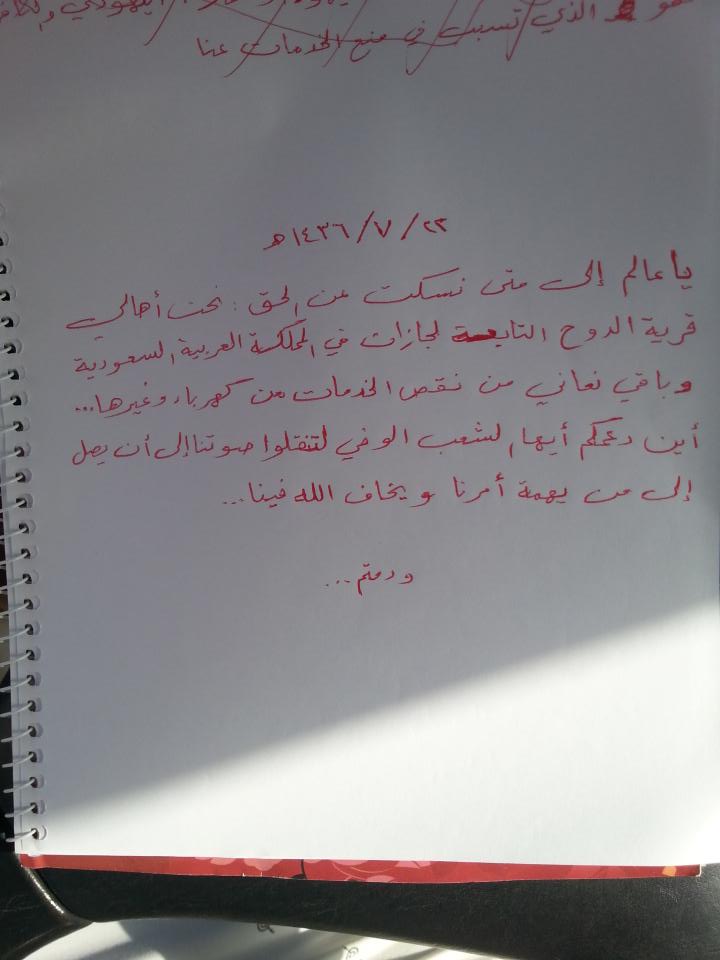 هو الذي تسبب في منع الخدمات عنا
٢٢/٧/١٤٣٦هـ
يا عالم إلى متى نسكت عن الحق: نحن أهالي
قرية الدوح التابعة لجازان في المملكة العربية السعودية
وباقي نعاني من نقص الخدمات من كهرباء وغيرها...
أين دعمكم أيها الشعب الوفي لتنقلوا صوتنا إلى أن يصل
إلى من يهمة أمرنا ويخاف الله فينا...
ودمتم...